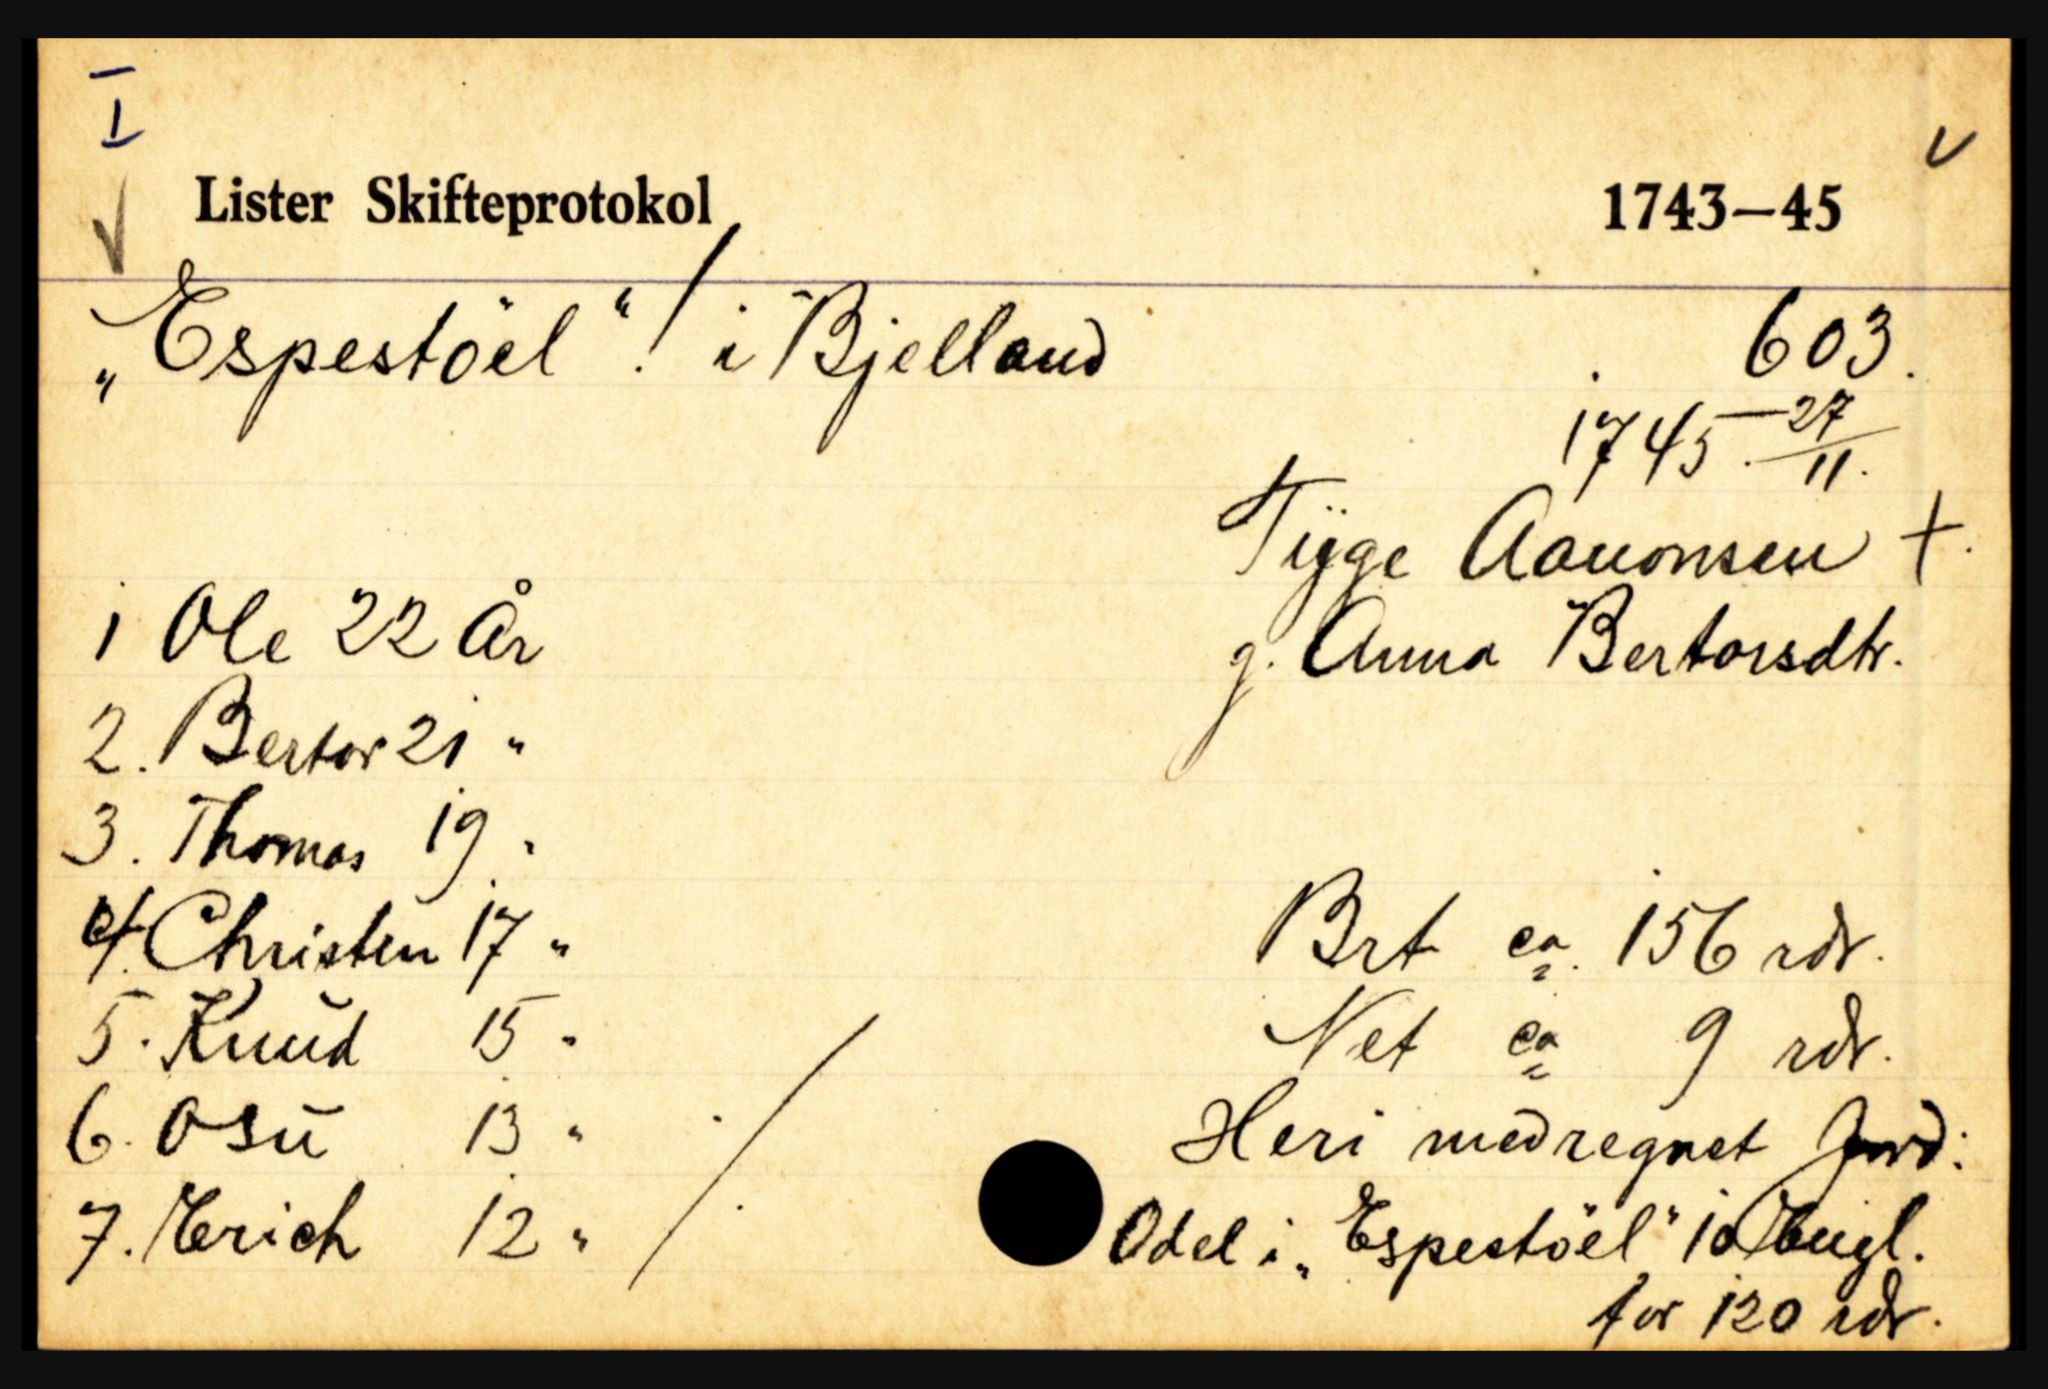 I
Lister Skifteprotokol 1743—45
„Espestöel“! i Bjelland 603.
1745 — 27/11.
Tÿge Aanonsen +.
g. Anna Bertorsdtr.
1 Ole 22 År
2. Bertor 21 "
3. Thomas 19 "
4. Christen 17 "
5. Knud 15 "
6. Osŭ 13 "
7. Erich 12 "
Brt ca. 156 rdr.
Net ca 9 rdr.
Heri medregnet Jord:
Odel i „Espestöel“ 10
for 120 rdr.